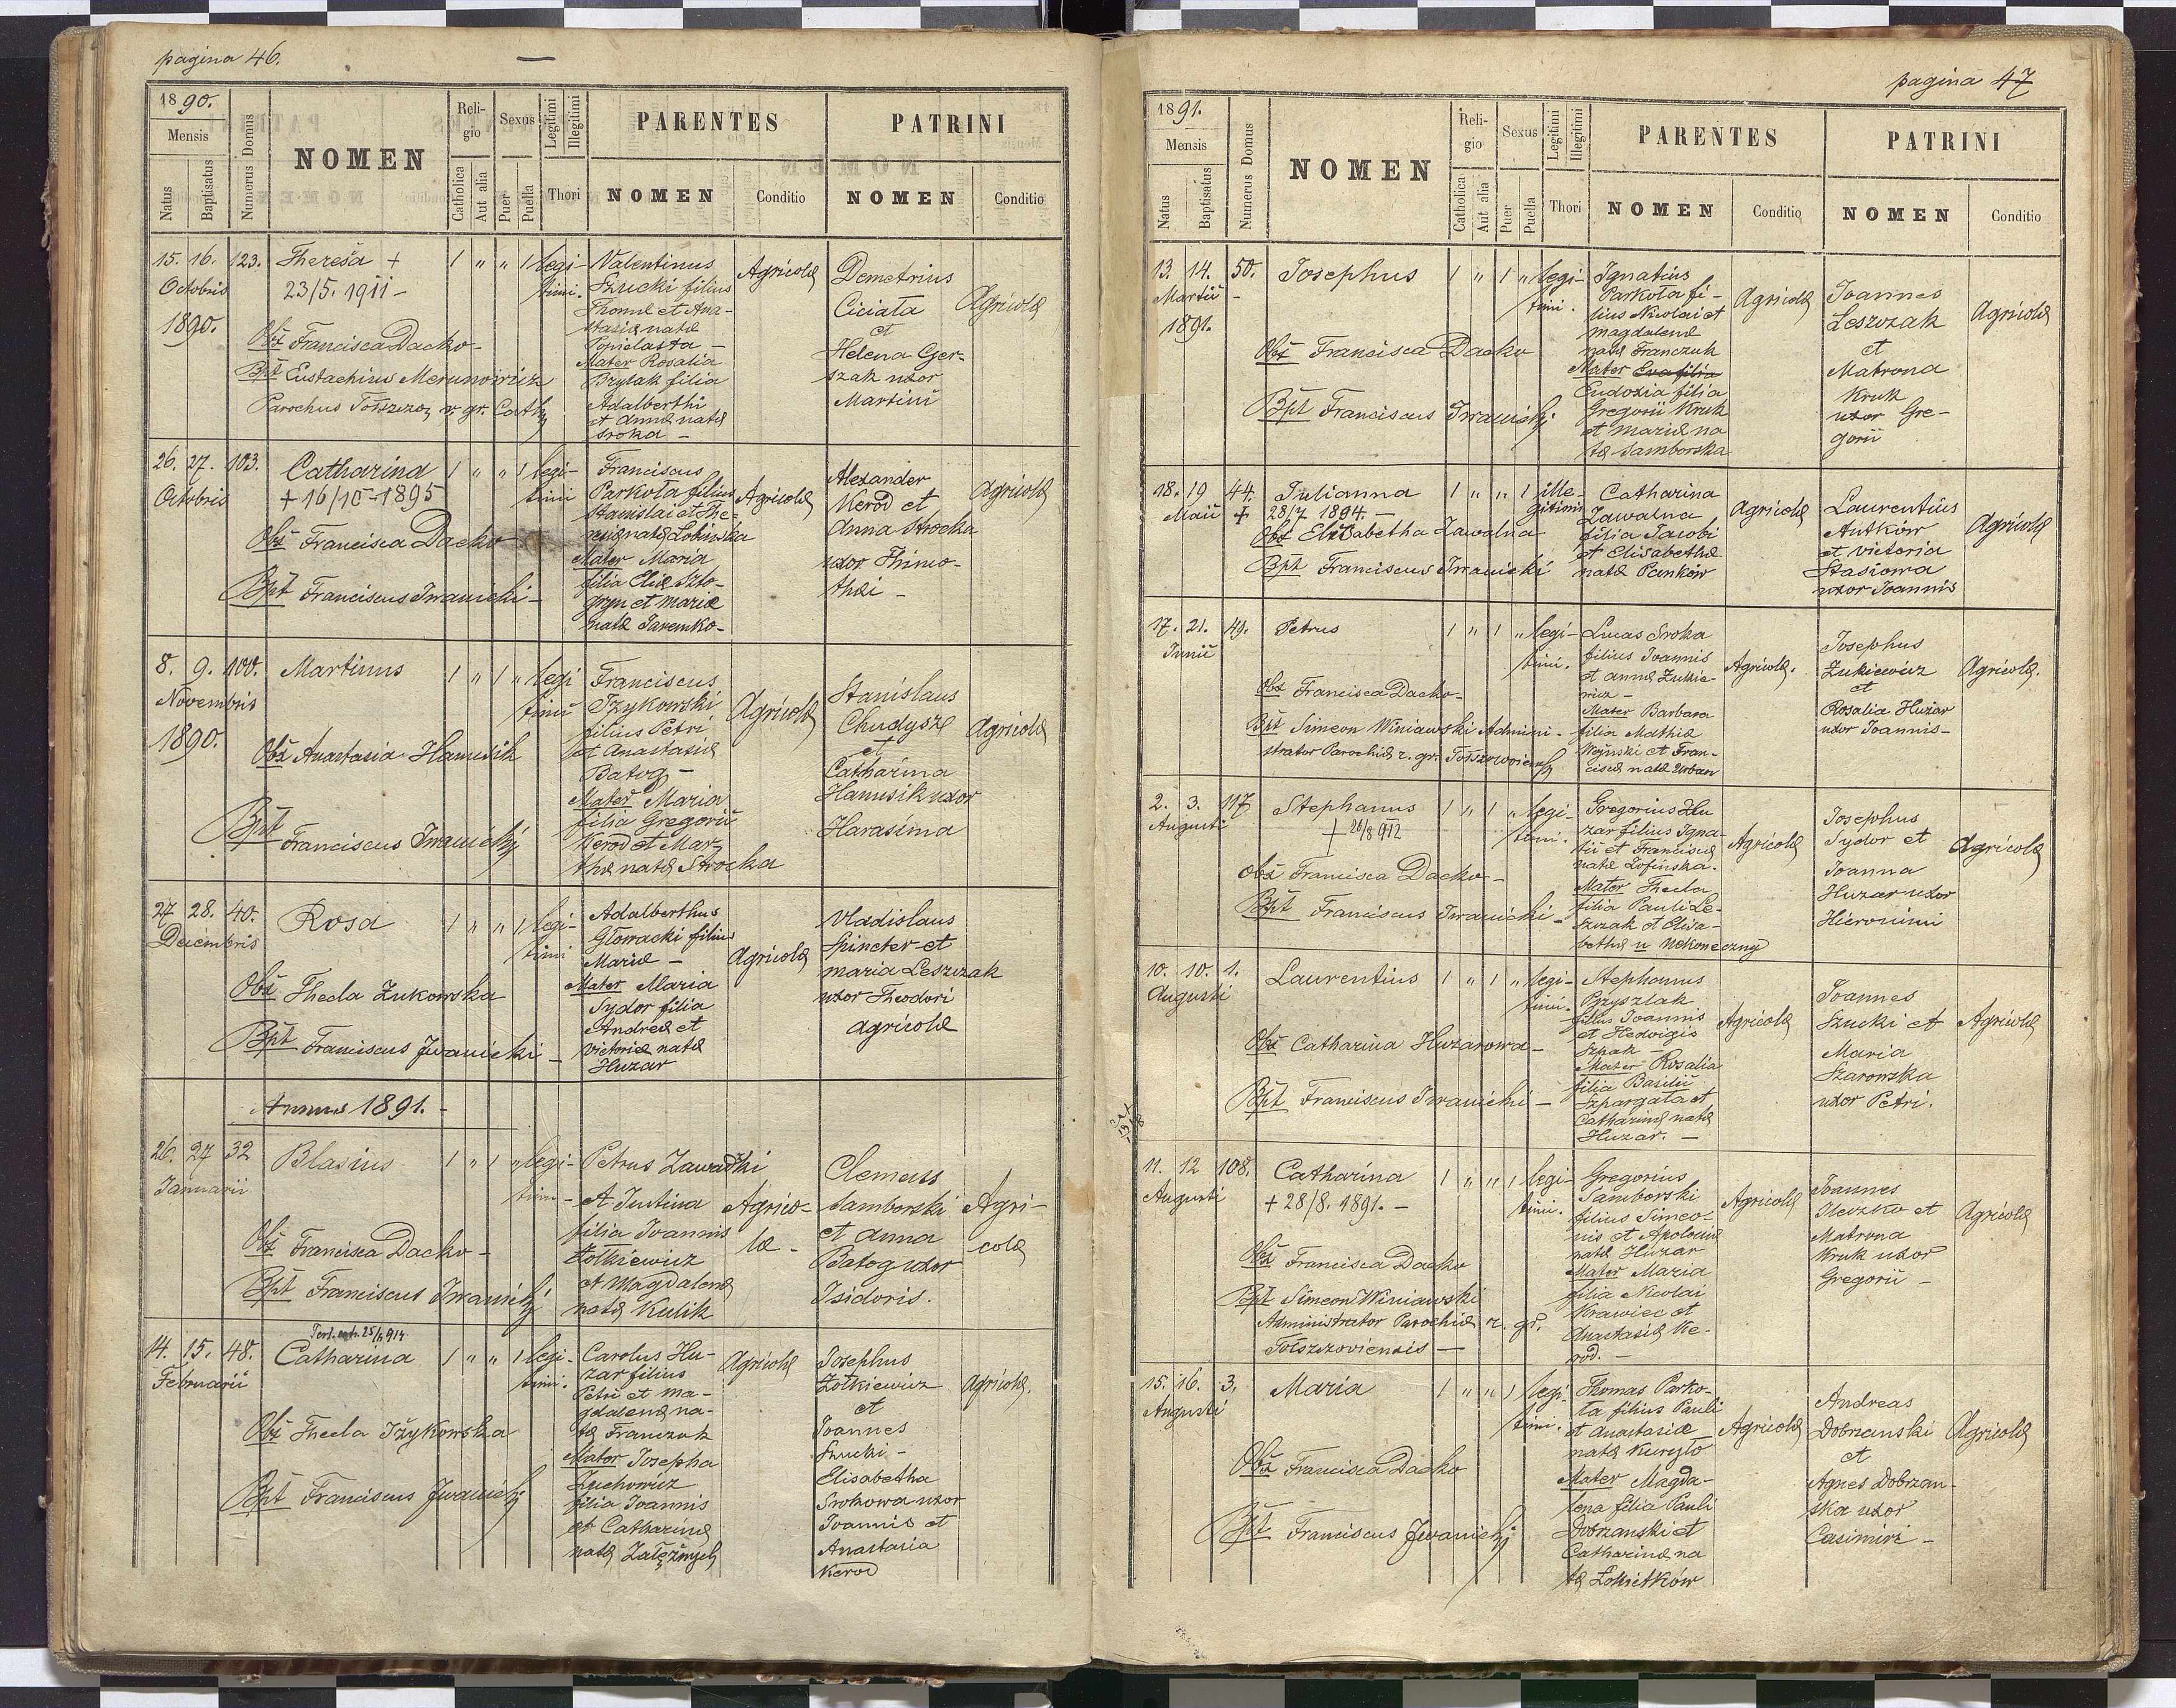 pagina 46.
1890.
Mensis
Natus
Baptisatus
Numerus Domus
NOMEN
Reli-
gio
Catholica
Aut alia
Sexus
Puer
Puella
Legitimi
Illegitimi
Thori
PARENTES
NOMEN
Conditio
PATRINI
NOMEN
Conditio
15. 16. 123. Theresa + 1 " " 1 legi-
timi.
Octobris
1890.
23/5. 1911 -
Obs Francisca Dacko -
Bpt Eustachius Merunowicz
Parochus Toszczo, r. gr. Cath
Valentinus
Szucki filius
Thomæ et Ana-
stasiæ natæ
Popielasta -
Mater Rosalia
Brylak filia
Adalberthi
et Annæ natæ
Sroka -
Agricolæ
Demetrius
Ciciata
et
Helena Ger-
szak uxor
Martini
Agricolæ
26. 27. 103. Catharina 1 " " 1 legi-
timi
Octobris
+ 16/IC - 1895
Obs Francisca Dacko
Bpt Franciscus Iwanicki -
Franciscus
Parkota filius
Stanislai et The-
resiæ natæ Lobinska
Mater Maria
filia Eliæ Szto-
gryn et Mariæ
natæ Jaremko -
Agricolæ
Alexander
Kerod et
Anna Strocka
uxor Thimo-
thei -
Agricolæ
8. 9. 100. Martinus 1 " 1 " legi
timi
Novembris
1890.
Obs Anastasia Hanusik
Bpt Franciscus Iwanicki
Franciscus
Tzykowski
filius Petri
et Anastasiæ
Batog -
Mater Maria
filia Gregorii
Kerod et Mar-
thæ natæ Strocka
Agricolæ
Stanislaus
Chudysz
et
Catharina
Hanusik uxor
Harasima
Agricolæ
27 28. 40. Rosa 1 " " 1 legi-
timi
Decembris
Obs Thecla Zukowska
Bpt Franciscus Iwanicki -
Adalberthus
Głowacki filius
Mariæ -
Mater Maria
Sydor filia
Andreæ et
Victoriæ natæ
Huzar
Agricolæ
Vladislaus
Spincter et
Maria Leszczak
uxor Theodori
Agricolæ
Annus 1891. -
26. 27 32 Blasius 1 " 1 " legi-
timi -
Januarii
Obs Francisca Dacko -
Bpt Franciscus Iwanicki
Petrus Zawadzki
et Justina
filia Joannis
Żołkiewicz
et Magdalenæ
natæ Kulik
Agrico-
læ -
Clemens
Samborski
et Anna
Batog uxor
Isidoris.
Agri-
colæ
14. 15. 48. Catharina 1 " " 1 legi-
timi.
Februarii
Obs Thecla Iżykowska
Bpt Franciscus Iwanicki
Carolus Hu-
zar filius
Petri et Ma-
gdalenæ na-
tæ Franczuk
Mater Josepha
Zuchowicz
filia Joannis
et Catharinæ
natæ Załężnych
Agricolæ
Josephus
Żołkiewicz
et
Joannes
Szucki -
Elisabetha
Srokowa uxor
Joannis et
Anastasia
Kerod
Agricolæ.
pagina 47
1891.
Mensis
Natus
Baptisatus
Numerus Domus
NOMEN
Reli-
gio
Catholica
Aut alia
Sexus
Puer
Puella
Legitimi
Illegitimi
Thori
PARENTES
NOMEN
Conditio
PATRINI
NOMEN
Conditio
13. 14. 50. Josephus 1 " 1 " legi-
timi.
Martii -
1891.
Obs Francisca Dacko
Bpt Franciscus Iwanicki
Ignatius
Parkota fi-
lius Nicolai et
Magdalenæ
natæ Franczuk
Mater Eva filia
Eudoxia filia
Gregorii Kruk
et Mariæ na
tæ Samborska
Agricolæ
Joannes
Leszczak
et
Matrona
Kruk
uxor Gre-
gorii
Agricolæ
18. 19 44. Julianna 1 " " 1 ille-
gitimi
Maii + 28/7 1894. -
Obs Elisabetha Zawalna
Bpt Franciscus Iwanicki
Catharina
Zawalna
filia Jacobi
et Elisabethæ
natæ Panków
Agricolæ
Laurentius
Antków
et Victoria
Stasiowa
uxor Joannis
Agricolæ
17. 21. 49. Petrus 1 " 1 " legi-
timi.
Junii
Obs Francisca Dacko -
Bpt Simeon Winiawski Admini-
strator Parochiæ r. gr. Toszczoviens
Lucas Sroka
filius Joannis
et Annæ Zukie-
wicz -
Mater Barbara
filia Mathiæ
Woynski et Fran-
ciscæ natæ Urban
Agricolæ.
Josephus
Zukiewicz
et
Rosalia Huzar
uxor Joannis -
Agricolæ.
2. 3. 117 Stephanus 1 " 1 " legi-
timi.
Augusti
+ 26/8 912
Obs Francisca Dacko -
Bpt Franciscus Iwanicki -
Gregorius Hu
zar filius Igna-
tii et Franciscæ
natæ Lofinska.
Mater Thecla
filia Pauli Le-
szczak et Elisa-
bethæ n Nekoneczny
Agricolæ
Josephus
Sydor et
Joanna
Huzar uxor
Hieronimi
Agricolæ
10. 10. 1. Laurentius 1 " 1 " legi-
timi.
Augusti
Obs Catharina Huzarowa -
Bpt Franciscus Iwanicki -
Stephanus
Przyszlak
filius Joannis
et Hedvigis
Szpak -
Mater Rosalia
filia Basilii
Szpargata et
Catharinæ natæ
Huzar. -
Agricolæ
Joannes
Szucki et
Maria
Szarowska
uxor Petri.
Agricolæ
11. 12 108. Catharina 1 " " 1 legi-
timi.
Augusti
+ 28/8. 1891. -
Obs Francisca Dacko
Bpt Simeon Winiawski
Administrator Parochiæ r. gr.
Toszczoviensis -
Gregorius
Samborski
filius Simeo-
nis et Apoloniæ
natæ Huzar
Mater Maria
filia Nicolai
Krawiec et
Anastasiæ Ke-
rod. -
Agricolæ
Joannes
Ileczko et
Matrona
Kruk uxor
Gregorii -
Agricolæ
15. 16. 3. Maria 1 " " 1 legi-
timi.
Augusti
Obs Francisca Dacko
Bpt Franciscus Iwanicki
Thomas Parko-
ta filius Pauli
et Anastasiæ
natæ Kuryło
Mater Magda-
lena filia Pauli
Dobrzanski et
Catharinæ na
tæ Łokietków
Agricolæ
Andreas
Dobrzanski
et
Agnes Dobrzan-
ska uxor
Casimiri -
Agricolæ